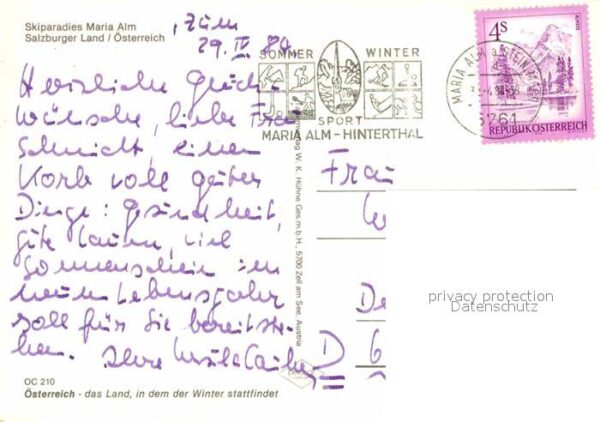 Skiparadies Maria Alm
Salzburger Land / Österreich
zum
29. IV 84
SOMMER WINTER
SPORT
MARIA ALM - HINTERTHAL
MARIA ALM a. STEINERNEN
5761
4S
ALMSEE
REPUBLIK ÖSTERREICH
Herzliche Glück-
wünsche, liebe Frau
Schmidt, einen
Korb voll guter
Dinge: Gesundheit,
gute Laune, viel
Sonnenschein im
neuen Lebensjahr
soll für Sie bereitste-
hen. Ihre
Frau
D
6
W. K. Hühne Ges.m.b.H., 5700 Zell am See, Austria
privacy protection
Datenschutz
OC 210
Österreich - das Land, in dem der Winter stattfindet